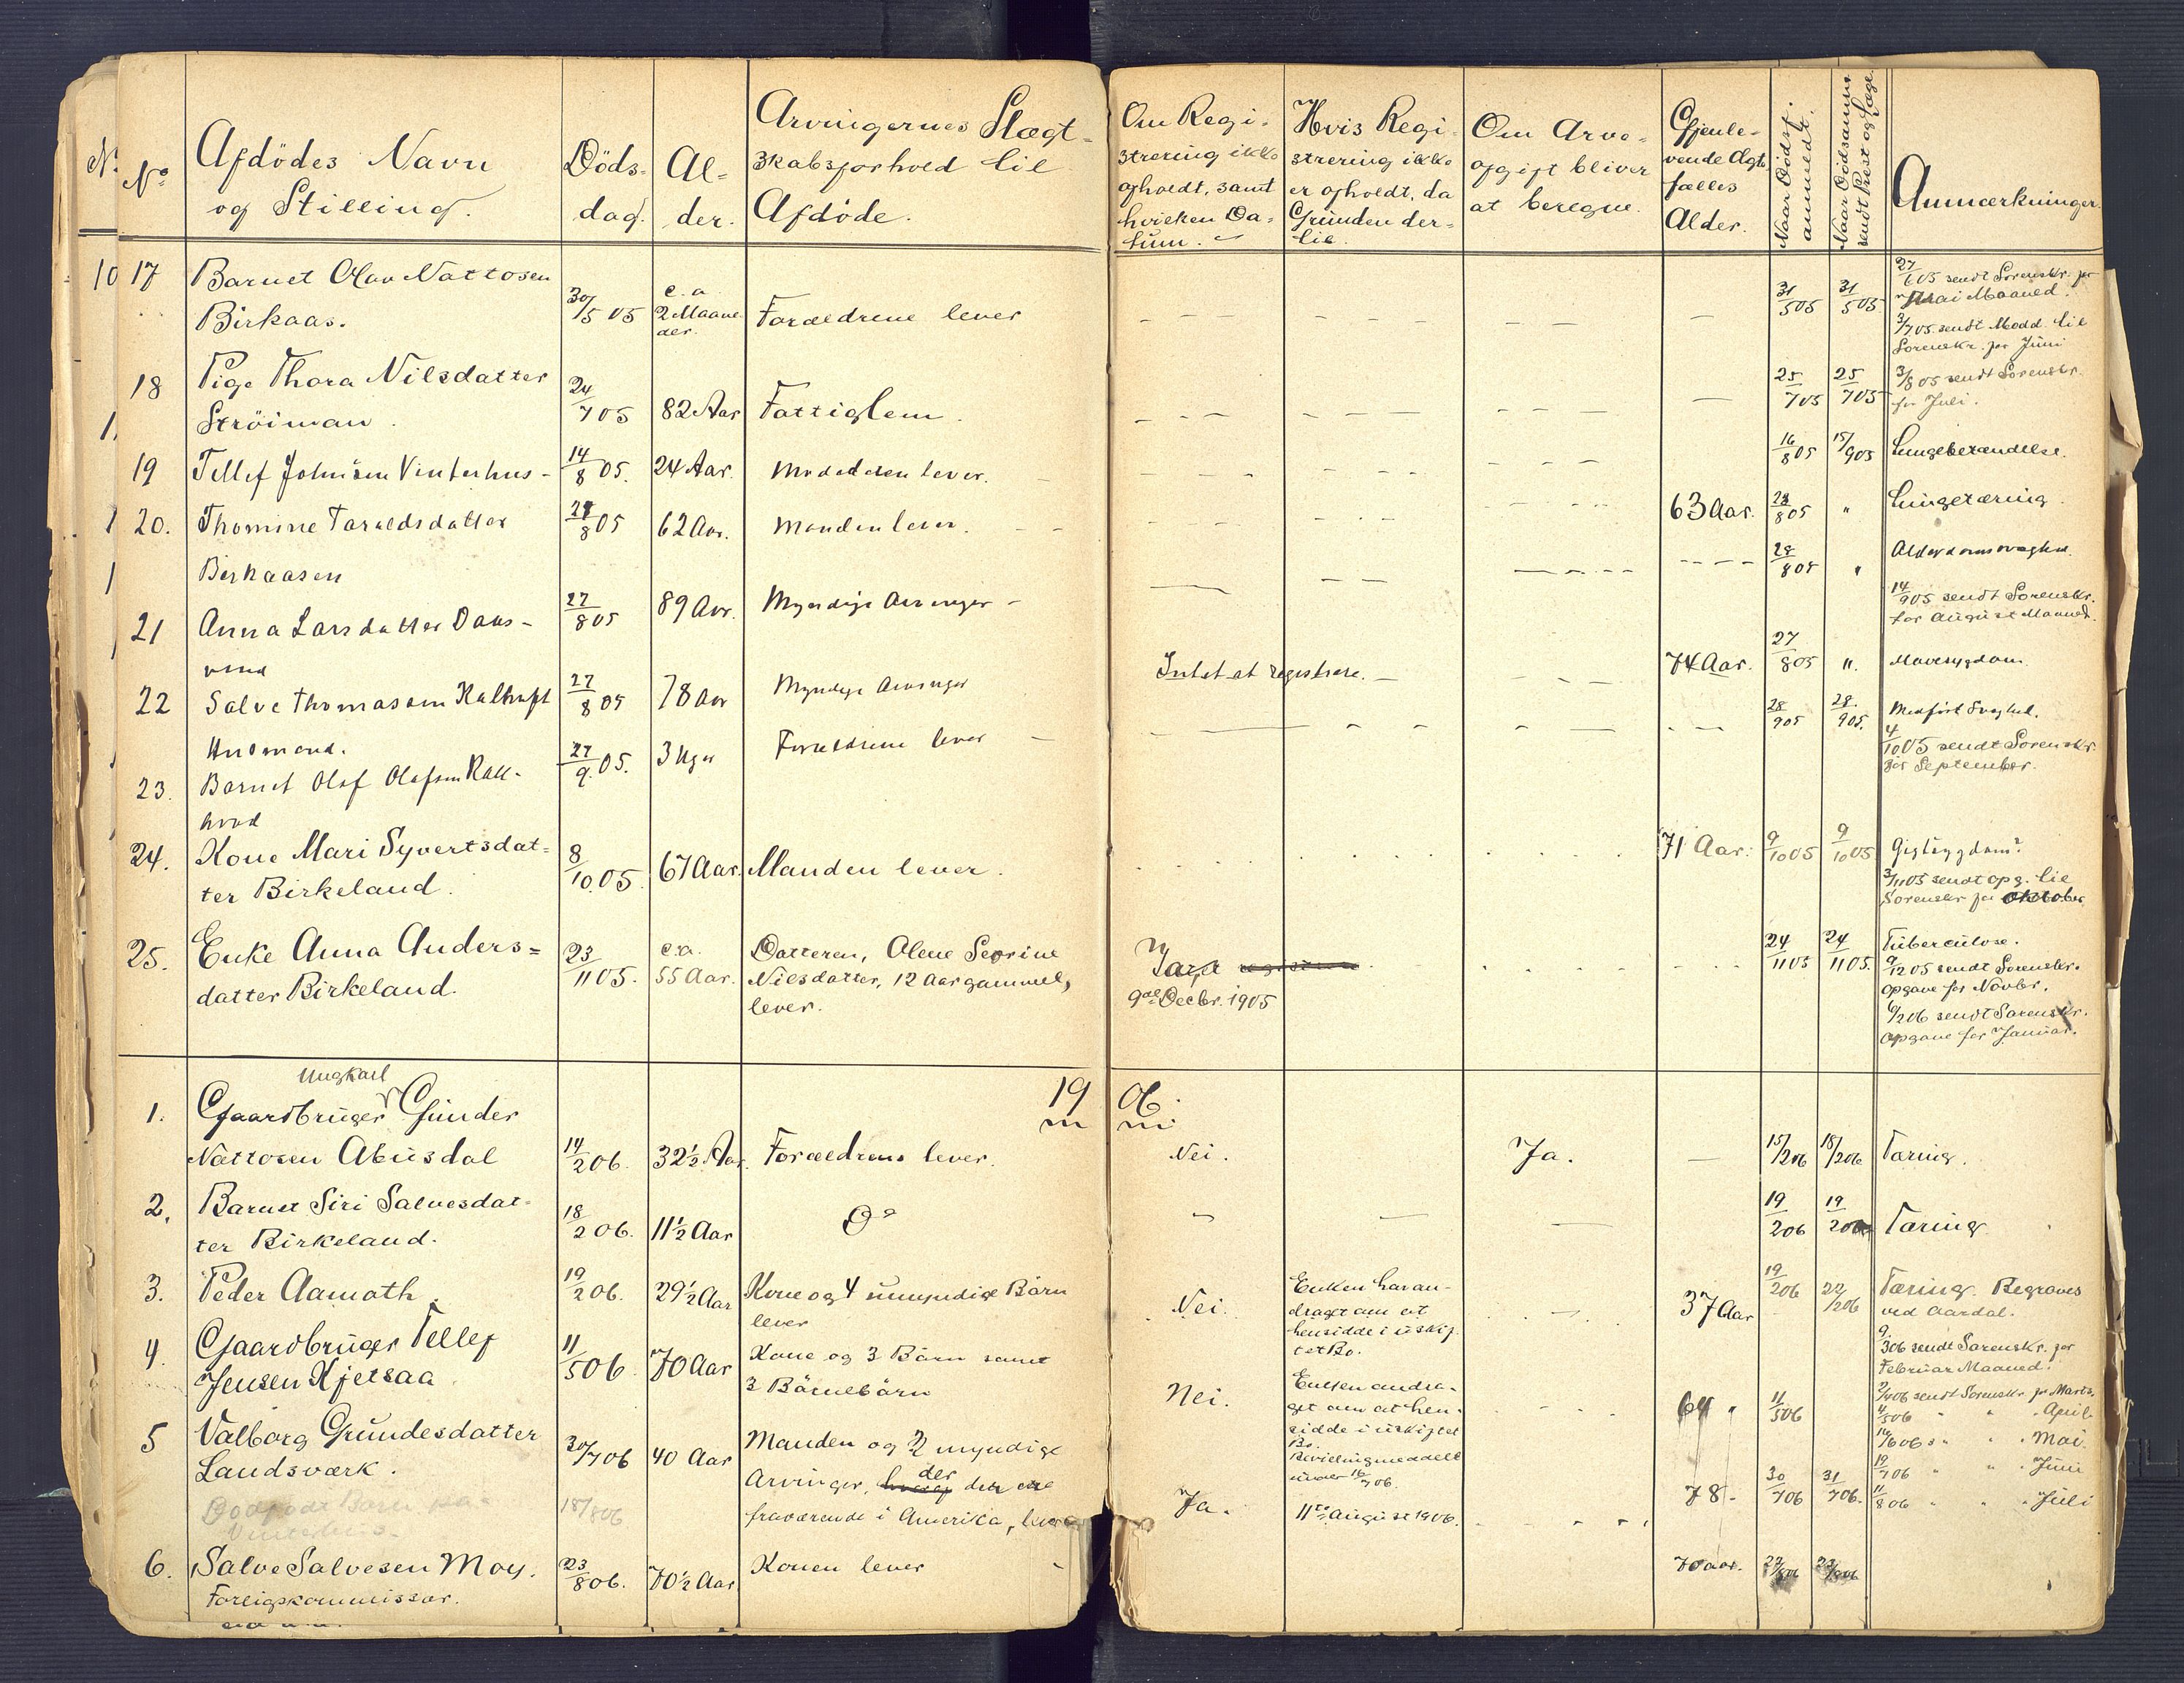 No
Afdödes Navn
og Stilling.
Döds-
dag.
Al-
der.
Arvingernes Slægt-
skabsforhold til
Afdöde.
Om Regi-
strering ikke
afholdt, samt
hvilken Da-
tum.
Hvis Regi-
strering ikke
er afholdt, da
Grunden der-
til.
Om Arve-
afgift bliver
at beregne.
Gjenle-
vende Ægte
fælles
Alder.
Naar Dödsf.
anmeldt.
Naar Dödsanm.
sendt Prest og Læge
Anmærkninger.
10 17 Barnet Olav Nattosen
Birkaas.
30/5 05
c. a
2 Maane
der.
Forældrene lever
31/5 05
31/5 05
27/6 05 sendt Sorenskr. for
Mai Maaned.
3/7 05 sendt Modd. til
Sorenskr. for Juni
18 Pige Thora Nilsdatter
Ströiman.
24/7 05
82 Aar
Fattiglem
25/7 05
25/7 05
3/8 05 sendt Sorenskr.
for Juli.
19 Tellef Johnsen Vinterhus-
14/8 05.
24 Aar.
Modederen lever.
16/8 05
15/9 05
Lungebetændelse.
20. Thomine Taraldsdatter
Birkaasen
28/8 05
62 Aar.
Manden lever.
63 Aar.
28/8 05
"
Lungetæring
21 Anna Larsdatter Daas-
vand
27/8 05
89 Aar.
Myndige Arvinger -
28/8 05
"
Alderdomssvaghed.
14/9 05 sendt Sorenskr.
for August Maaned.
22 Salve Thomassen Kalhoft
Husmand.
27/8 05
78 Aar
Myndige Arvinger
Intet at registrere. -
74 Aar.
27/8 05
".
Mavesygdom
23. Barnet Olaf Olafsen Kall-
hvod
27/9. 05.
3 Uger
Forældrene lever
28/9 05
28./9 05.
Medført Svaghed.
4/10 05 sendt Sorenskr.
for September.
24. Kone Mari Syvertsdat-
ter Birkeland.
8/10. 05.
67 Aar.
Manden lever.
71 Aar.
9/10 05
9/10 05
Gigtsygdom?
3/11 05 sendt opg. til
Sorenskr for Oktober
25. Enke Anna Anders-
datter Birkeland.
23/11 05.
c.a.
55 Aar.
Datteren, Olene Severine
Nilsdatter, 12 Aar gammel,
lever.
9de Decbr. 1905
24/11 05
24/11 05.
Tuberculose.
9/12 05 sendt Sorenskr.
opgave for Novbr.
6/2 06 sendt Sorenskr.
opgave for Januar.
19 06.
Ungkarl
1. Gaardbruger Gunder
Nattosen Abusdal
14/2 06.
32½ Aar.
Forældrene lever.
Nei.
Ja.
15/2 06
18/2 06
Tæring.
2. Barnet Siri Salvesdat-
ter Birkeland.
18/2 06.
11½ Aar
Do
19/2 06
19/2 06
Tæring
3. Peder Aamoth.
19/2 06.
29½ Aar
Kone og 4 umyndige Börn
lever
Nei.
Enken har an-
draget om at
hensidde i uskif-
tet Bo.
37 Aar
19/2 06
22/2 06
Tæring. Begraves
ved Aardal.
9/3 06 sendt Sorenskr. for
Februar Maaned.
4. Gaardbruger Tellef
Jensen Kjetsaa
11/5 06
70 Aar
Kone og 3 Börn samt
3 Börnebörn
Nei.
Enken andra-
get om at hen-
sidde i uskiftet
Bo.
Bevilling meddelt
under 16/7 06.
64 "
11/5 06
2/4 06 sendt Sorenskr. for Marts.
4/5 06 " " April
16/6 06 s " " Mai.
12/7 06 " " Juni
11/8 06 " " Juli
5 Valborg Grundesdatter
Landsværk.
30/7 06
40 Aar
Manden og 2 myndige
Arvinger, hvoraf der den ene
fraværende i Amerika, lever
Ja.
11te August 1906.
78.
30/7 06
31/7 06.
Dödfödt Barn paa
Vinterhus.
18/8 06
6. Salve Salvesen Moy.
Forligskommissær.
23/8 06.
70½ Aar
Konen lever
70 aar.
23/8 06
23/8 06